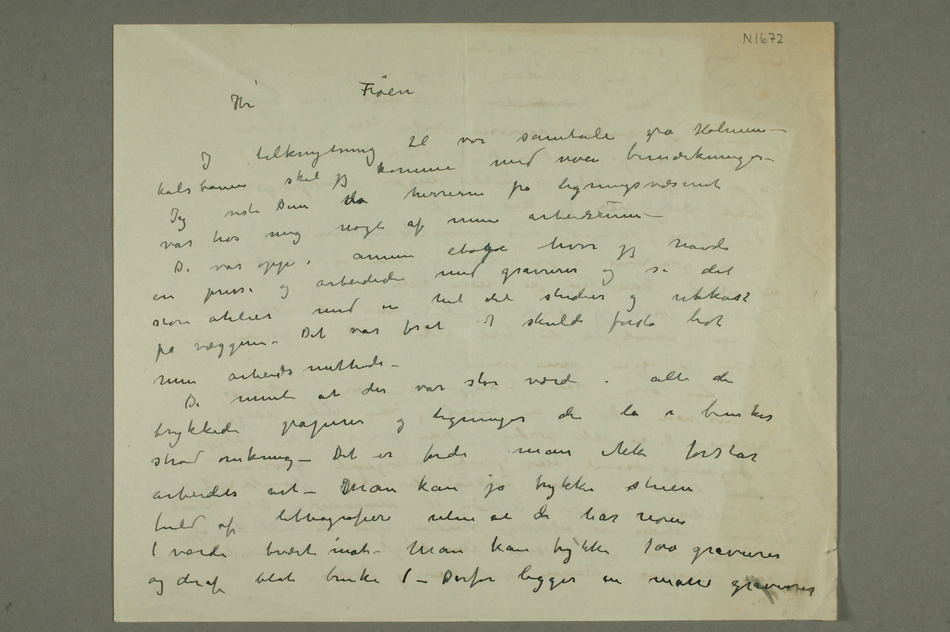 N 1672
Hr Fröen
I tilknytning til vor samtale på Holmen-
kolsbanen skal jeg komme med noen bemærkninger –
Jeg viste Dem da herrerne fra ligningsvæsnet
var hos mig nogle af mine arbeidsrum –
De var oppe i annen etage hvor jeg havde
en presse og arbeidede med gravurer og så det
store atelier med en hel del studier og utkast
på væggene – Det var forat I skulde forstå lidt
min arbeidsmethode –
De mente at der var stor værdi i alle de
trykkede papirer og tegninger der lå i bunker
strød omkring – Det er fordi man ikke forstår
arbeidets art – Man kan jo trykke stuen
fuld af litografier uten at de har noen
værdi tvært imot – Man kan trykke 100 gravurer
og deraf blot bruke 1 – Derfor ligger en masse gravurer